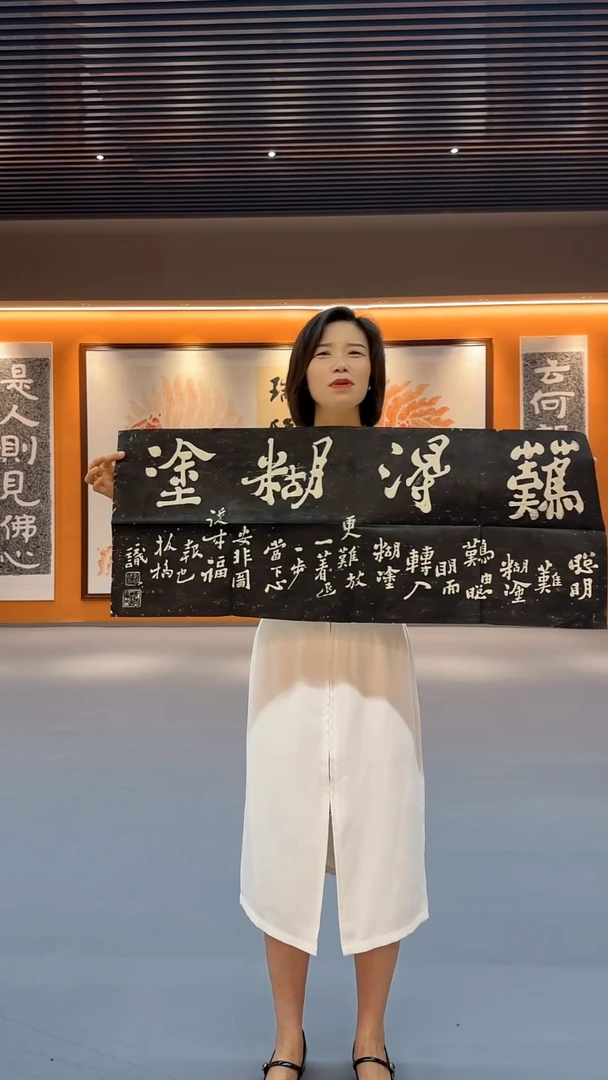 難得糊塗
聰明
難
糊塗
難由聰
明而
轉入
糊塗
更難放
一著退
一步
當下心
安非圖
後来福
報也
板橋
識
云何
瑞
是人則見佛心